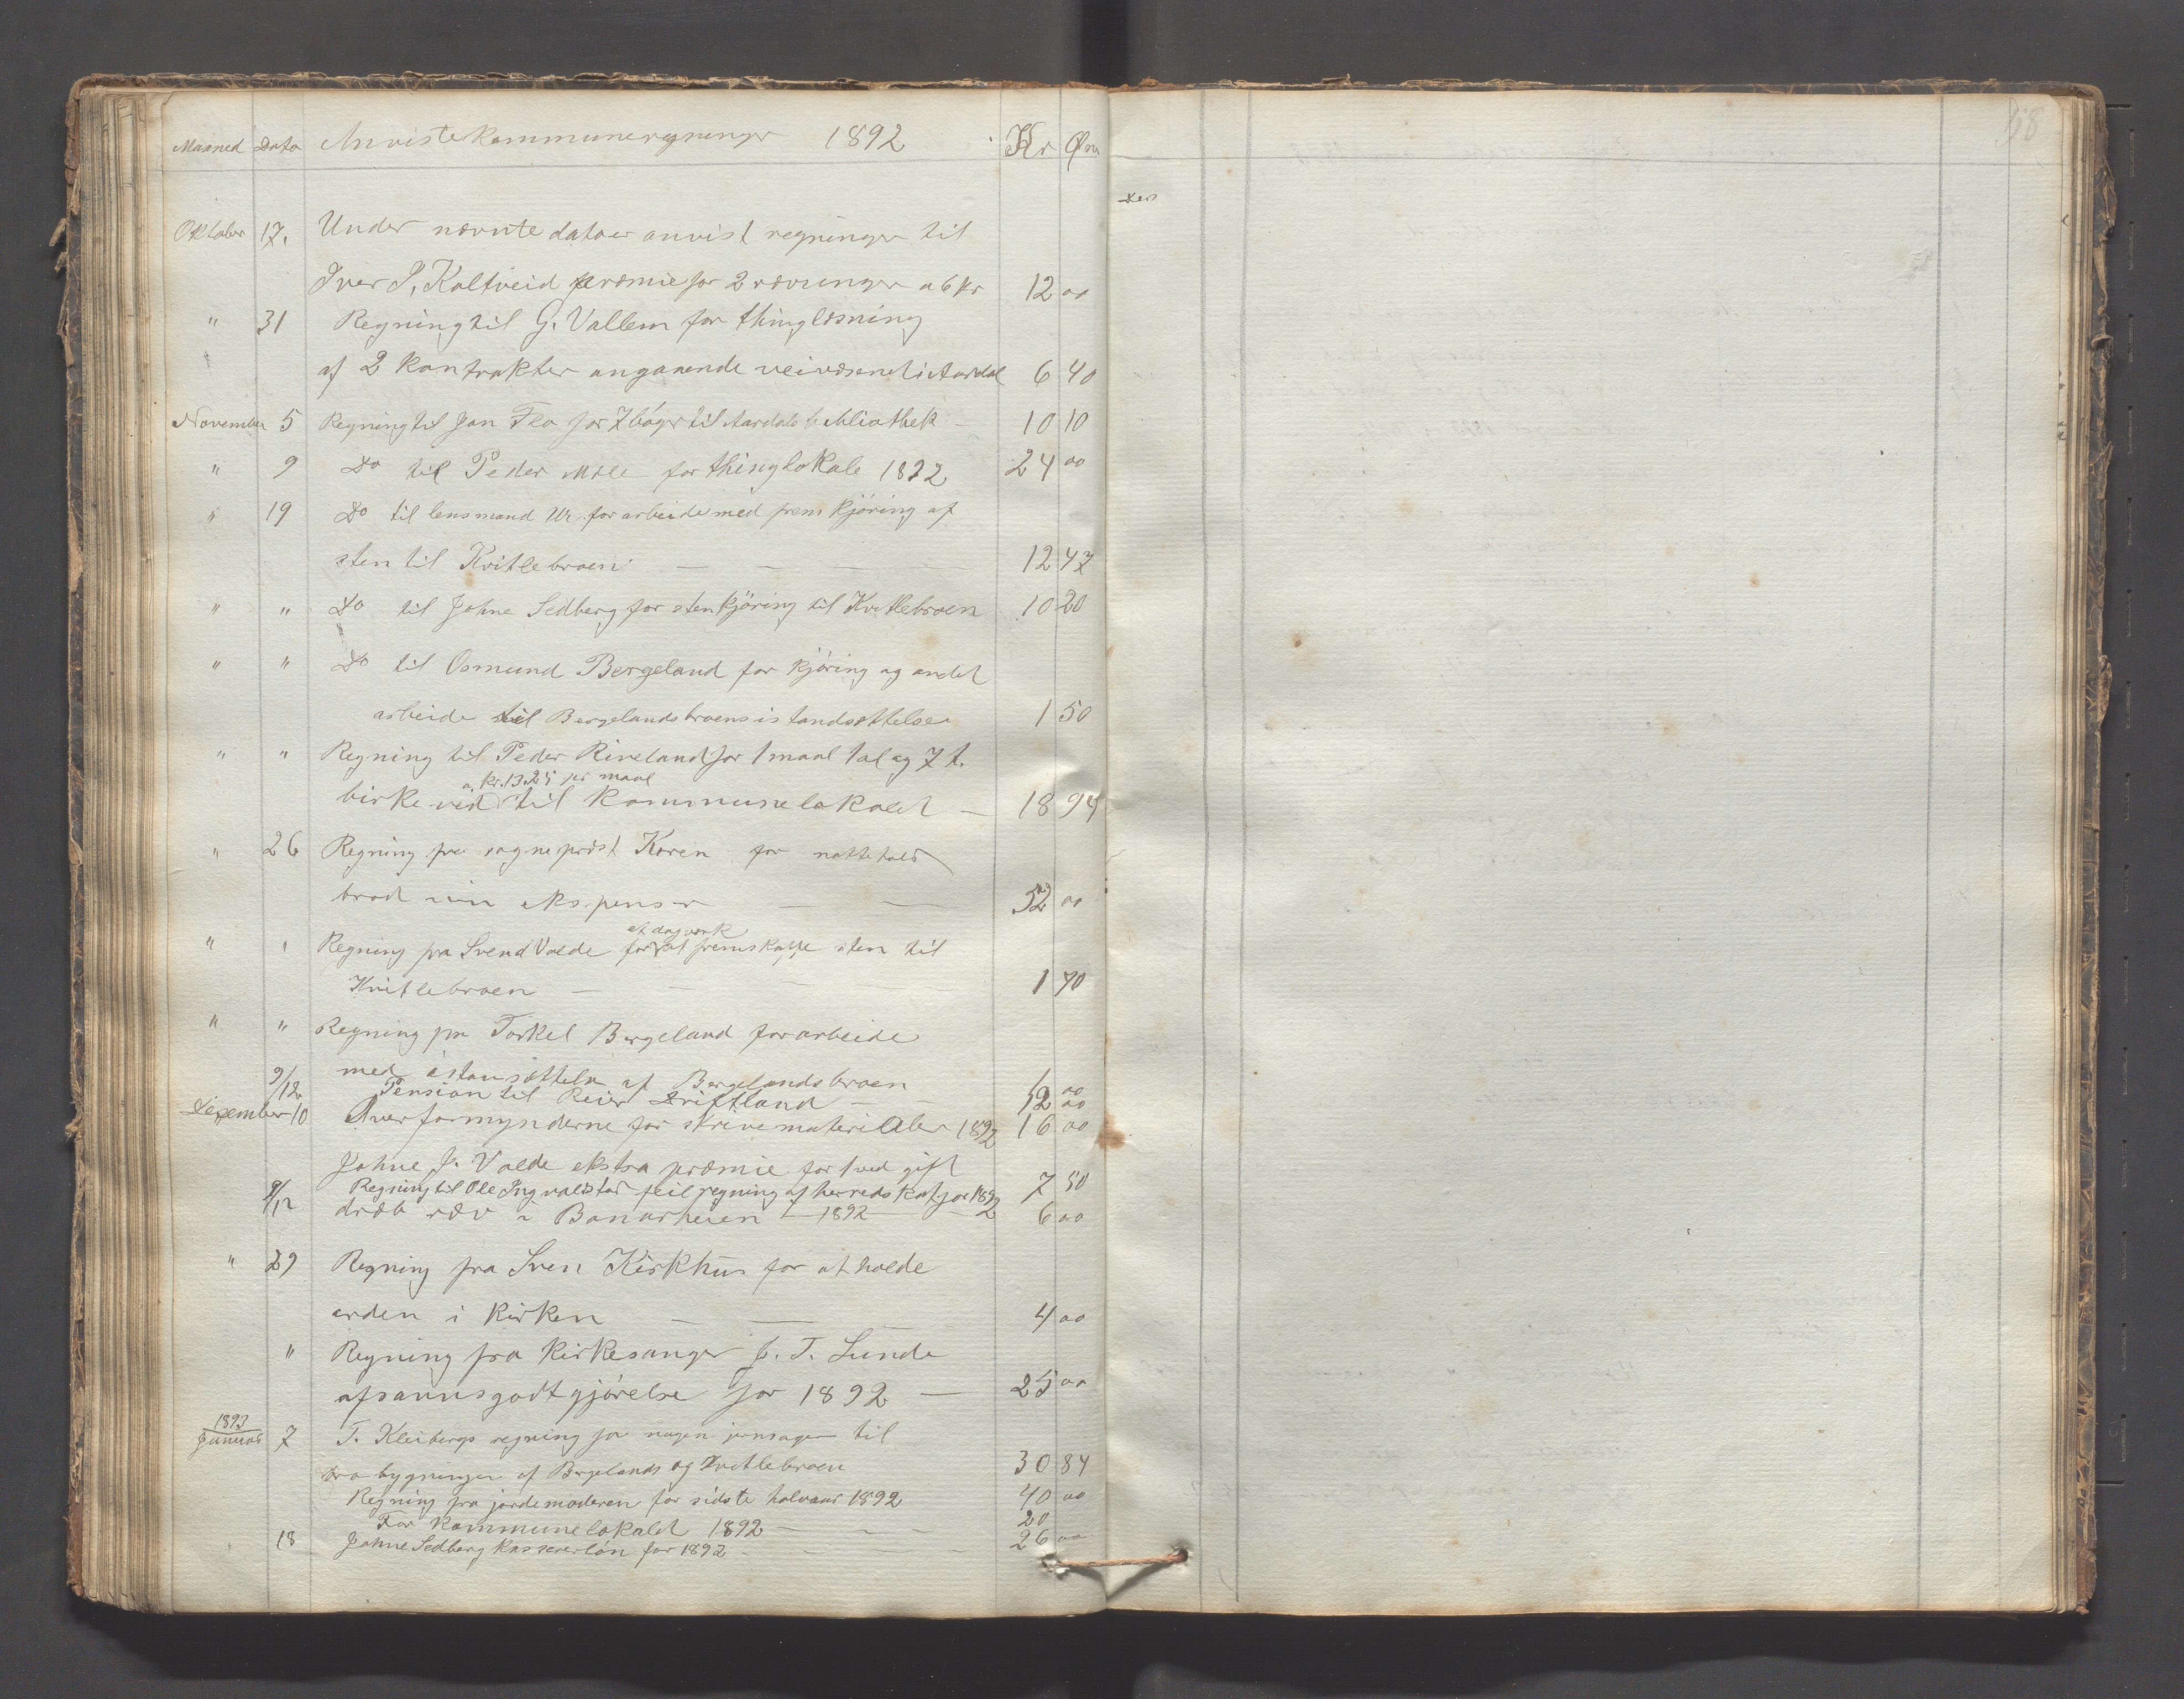 Maaned Dato Anviste kommuneregninger 1892 Kr Øre
Oktober 17. Under nævnte datoer anvist regninger til
Iver P. Kaltveid præmie for 2 ræveunger a 6 kr 12 00
" 31 Regning til G. Vallem for thinglæsning
af 2 kontrakter angaaende veivæsenet i Aardal 6 40
November 5 Regning til Jon Flo for 7 bøger til Aardals bibliothek - 10 10
" 9 Do til Peder Mæle for thinglokale 1892 24 00
" 19 Do til lensmand Ur for arbeide med fremkjøring af
sten til Kvitlebroen 12 47
" " Do til Johne Sedberg for stenkjøring til Kvitlebroen 10 20
" " Do til Osmund Bergeland for kjøring og andet
arbeide til Bergelandsbroens istandsættelse 1 50
" " Regning til Peder Riveland for 1 maal 1 al og 7 t.
a. kr. 13.25 per maal
birkeved til kommunelokalet - 18 94
" 26 Regning fra sogneprest Koren for
brød vin ekspenser 52 00
et dagverk
" " Regning fra Svend Valde for at fremskaffe sten til
Kvitlebroen 1 70
" " Regning fra Torkel Bergeland for arbeide
med istansættelse af Bergelandsbroen 1 00
9/12 Pension til Reier Driftland 12 00
Dezember 10 Overformynderne for skrivematerialer 1892 16 00
Johne J. Valde ekstra præmie for 1 ved gift
9/12 Regning til Ole Ingvaldstad feil regning af herredskat for 1892 7 50
dræb ræv i Banarheien 1892 6 00
" 29 Regning fra Sven Kirkhus for at holde
orden i kirken 4 00
" Regning fra kirkesanger T. Lunde
afsavnsgodtgjørelse for 1892 - 25 00
1893
Januar 7 T. Kleibergs regning for nogen jernsager til
brobygninger af Bergelands og Kvitlebroen 30 84
Regning fra jordemoderen for sidste halvaar 1892 40 00
For kommunelokalet 1892 - 20
" 18 Johne Sedberg kassererløn for 1892 - 26 00
58